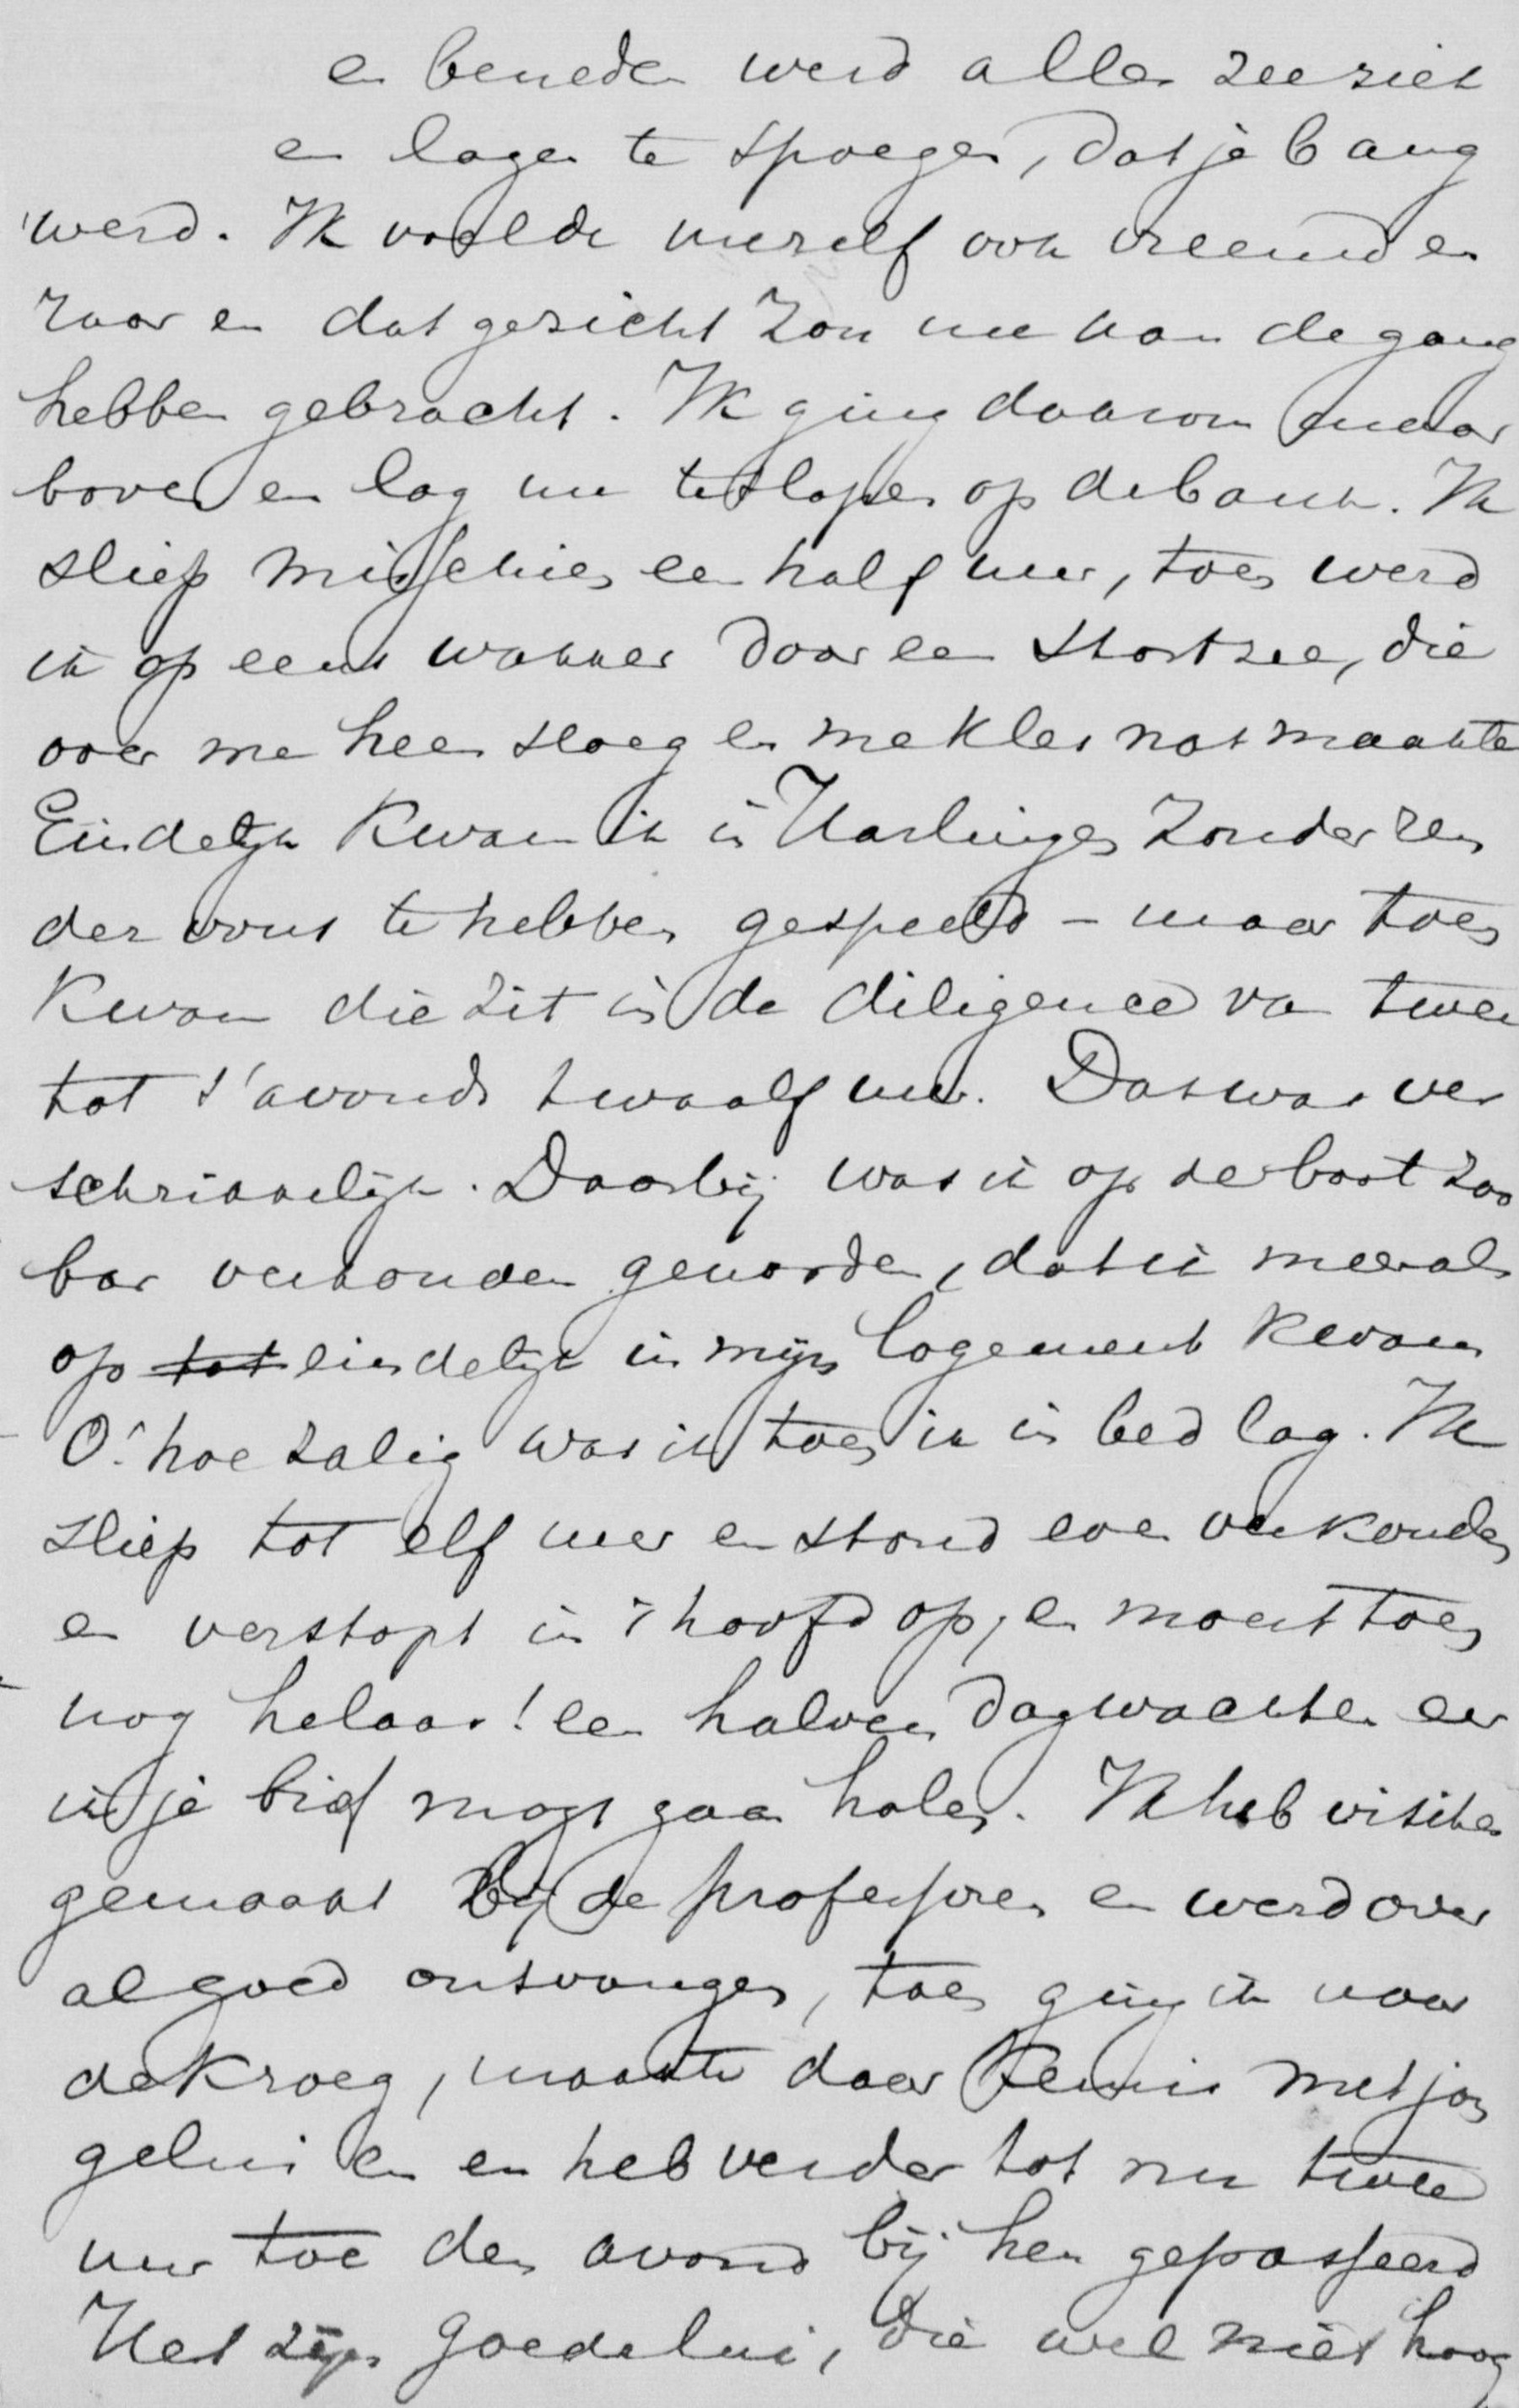 en beneden werd alles zeeziek
en lagen te spoegen, dat je bang
werd. Ik voelde mezelf ook vreemd en
raar en dat gezicht zou me van de gang
hebben gebracht. Ik ging daarom maar
boven en lag me te slapen op de bank. Ik
sliep misschien een half uur, toen werd
ik op eens wakker door een stortzee, die
over me heen sloeg en me kletsnat maakte
Eindelijk kwam ik in Harlingen zonder ver
der wous te hebben gespeeld – maar toen
kwam die zit in de diligence van twee
tot s'avonds twaalf uur. Dat was ver
schrikkelijk. Daarbij was ik op de boot zoo
bar verkouden geworden, dat ik meer als
op tot eindelijk in mijn logement kwam
O! hoe zalig was ik toen ik in bed lag. Ik
sliep tot elf uur en stond even verkouden
en verstopt in 't hoofd op, en moest toen
nog helaas! een halven dag wachten eer
ik je brief mogt gaan halen. Ik heb visites
gemaakt bij de professoren en werd over
al goed ontvangen, toen ging ik naar
de kroeg, maakte daar kennis met jon
gelui en en heb verder tot nu twee
uur toe den avond bij hen gepasseerd
Het zijn goede lui, die wel niet hoog